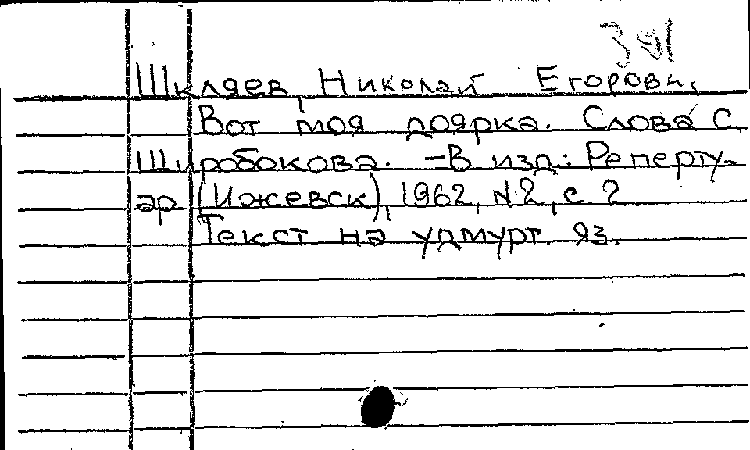 Шкляев, Николай Егорови.
Вот моя доярка. Слова С.
Широбокова. – В изд.: Реперту-
ар (Ижевск), 1962, N2, с 2
Текст на удмурт. яз.